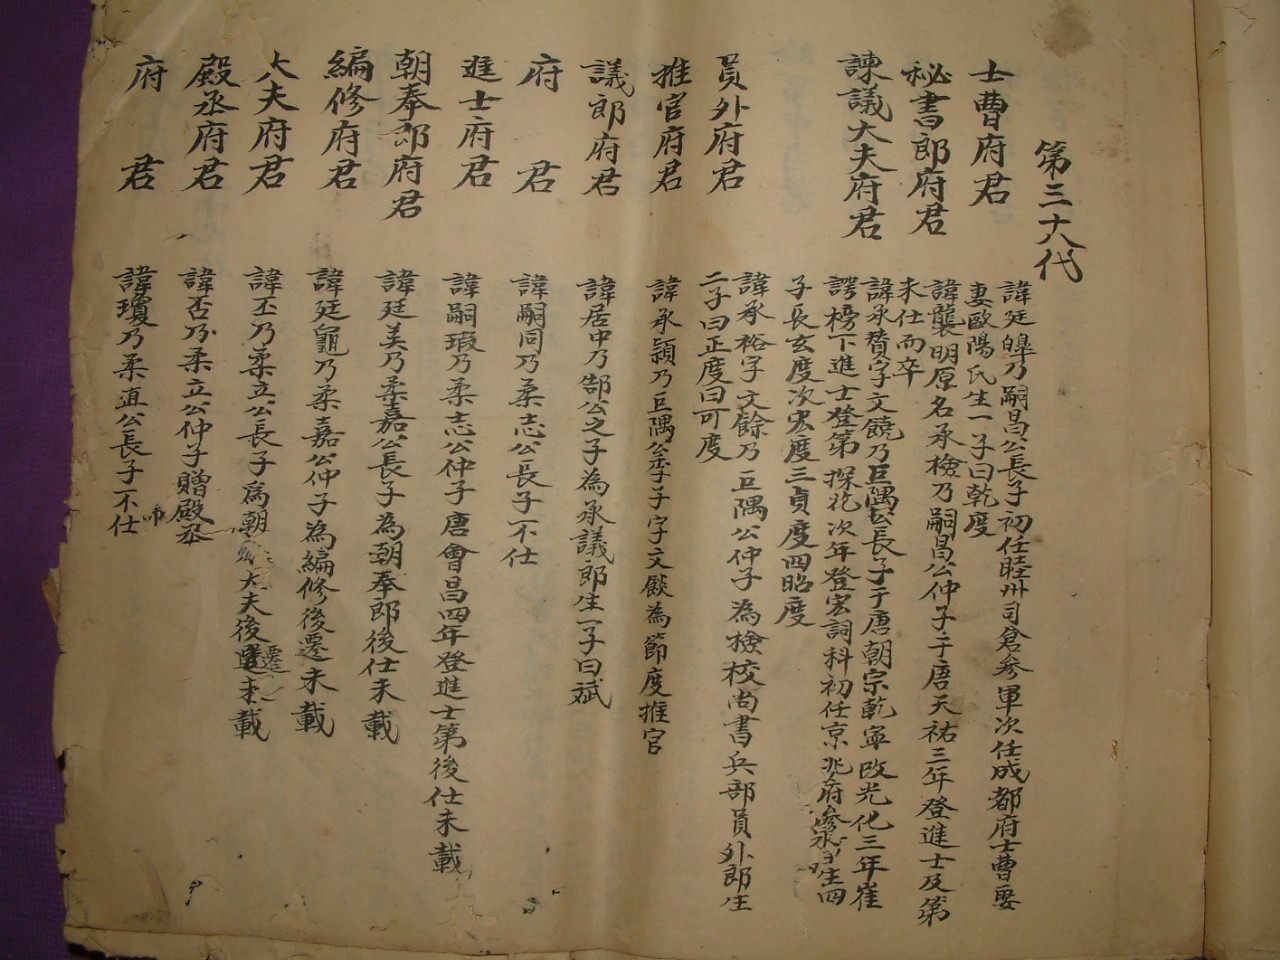 第三十八代
士曹府君
諱廷皞乃嗣昌公長子初任睦州司倉參軍次任成都府士曹娶
妻歐陽氏生一子曰乾度
秘書郎府君
諱襲明原名承檢乃嗣昌公仲子于唐天祐三年登進士及第
未仕而卒
諫議大夫府君
諱承贊字文饒乃巨隅公長子于唐朝宗乾寧改光化三年崔
諤榜下進士登第探花次年登宏詞科初任京兆府參軍生四
子長玄度次宏度三貞度四昭度
員外府君
諱承裕字文餘乃巨隅公仲子為檢校尚書兵部員外郎生
二子曰正度曰可度
推官府君
諱承頴乃巨隅公季子字文燄為節度推官
議郎府君
諱居中乃郜公之子為承議郎生一子曰斌
府君
諱嗣同乃柔志公長子不仕
進士府君
諱嗣瑕乃柔志公仲子唐會昌四年登進士第後仕未載
朝奉郎府君
諱廷美乃柔嘉公長子為朝奉郎後仕未載
編修府君
諱廷龜乃柔嘉公仲子為編修後遷未載
大夫府君
諱丕乃柔立公長子為朝大夫後遷未載
殿丞府君
諱否乃柔立公仲子贈殿丞
府君
諱瓊乃柔直公長子不仕